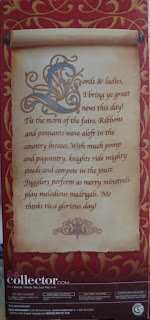 Lords & ladies,
I bring ye great
news this day!
'Tis the morn of the faire. Ribbons
and pennants wave aloft in the
country breeze. With much pomp
and pageantry, knights ride mighty
steeds and compete in the joust.
Jugglers perform as merry minstrels
play melodious madrigals. Me
thinks tis a glorious day!
collector.COM